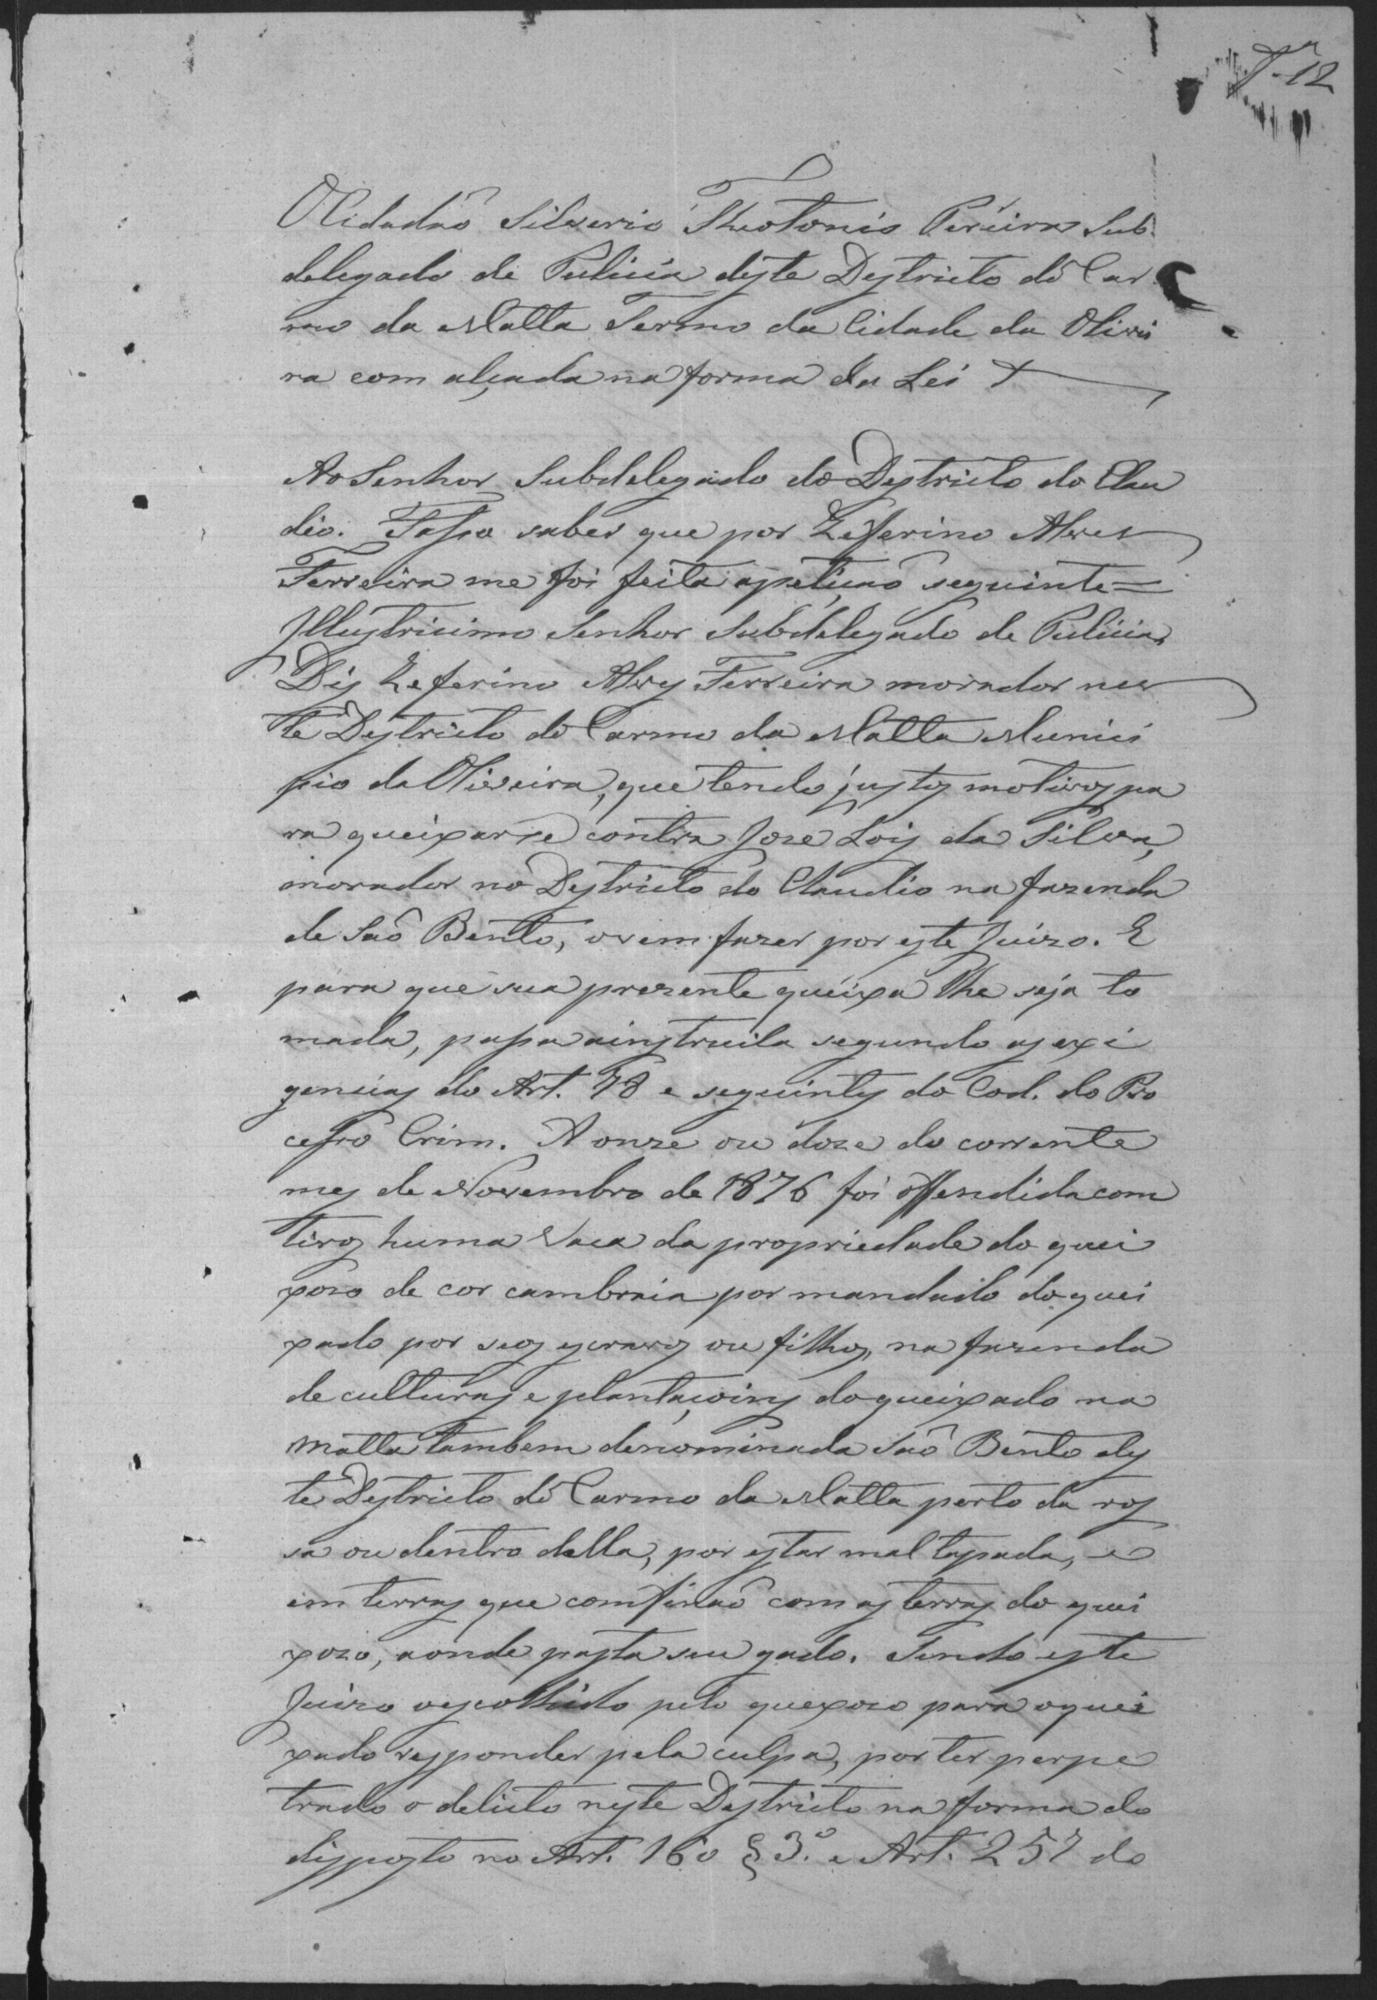 12
O Cidadão Silverio Theotonio Pereira Sub-
delegado de Pulicia deste Destricto do Car-
mo da Matta Termo da Cidade da Olivei
ra com alçada na forma da Lei
Ao Senhor Subdelegado do Destricto do Clau
dio. Fasso saber que por Zeferino Alves
Ferreira me foi feita apetição seguinte =
Illustricimo Senhor Subdelegado de Pulicia,
Dis Zeferino Alves Ferreira morador nes
te Destricto do Carmo da Matta Munici
pio da Oliveira, que tendo justos motivos pa
ra queixarse contra Jose Lois da Silva,
morador no Destricto do Claudio na fazenda
de São Bento, o vem fazer por este Juizo. E
para que sua prezente queixa lhe seja to
mada, passa a instruila segundo as exi
gencias do Art. 78 e seguintes do Cod. do Pro
cesso Crim. A onze ou doze do corrente
mes de Novembro de 1876 foi offendida com
tiros huma Vaca da propriedade do quei
xozo de cor cambraia por mandado do quei
xado por seos escravos ou filhos, na fazenda
de culturas e plantaçoins do queixado na
Matta tambem denominada São Bento des
te Destricto do Carmo da Matta perto da ros
sa ou dentro della, por estar mal tapada, e
em terras que confinão com as terras do quei
xozo, aonde pasta seu gado. Sendo este
Juizo o escolhido pelo quexozo para o quei
xado responder pela culpa, por ter perpe
trado o delicto neste Destricto na forma do
disposto no Art. 160 § 3.º e Art. 257 do